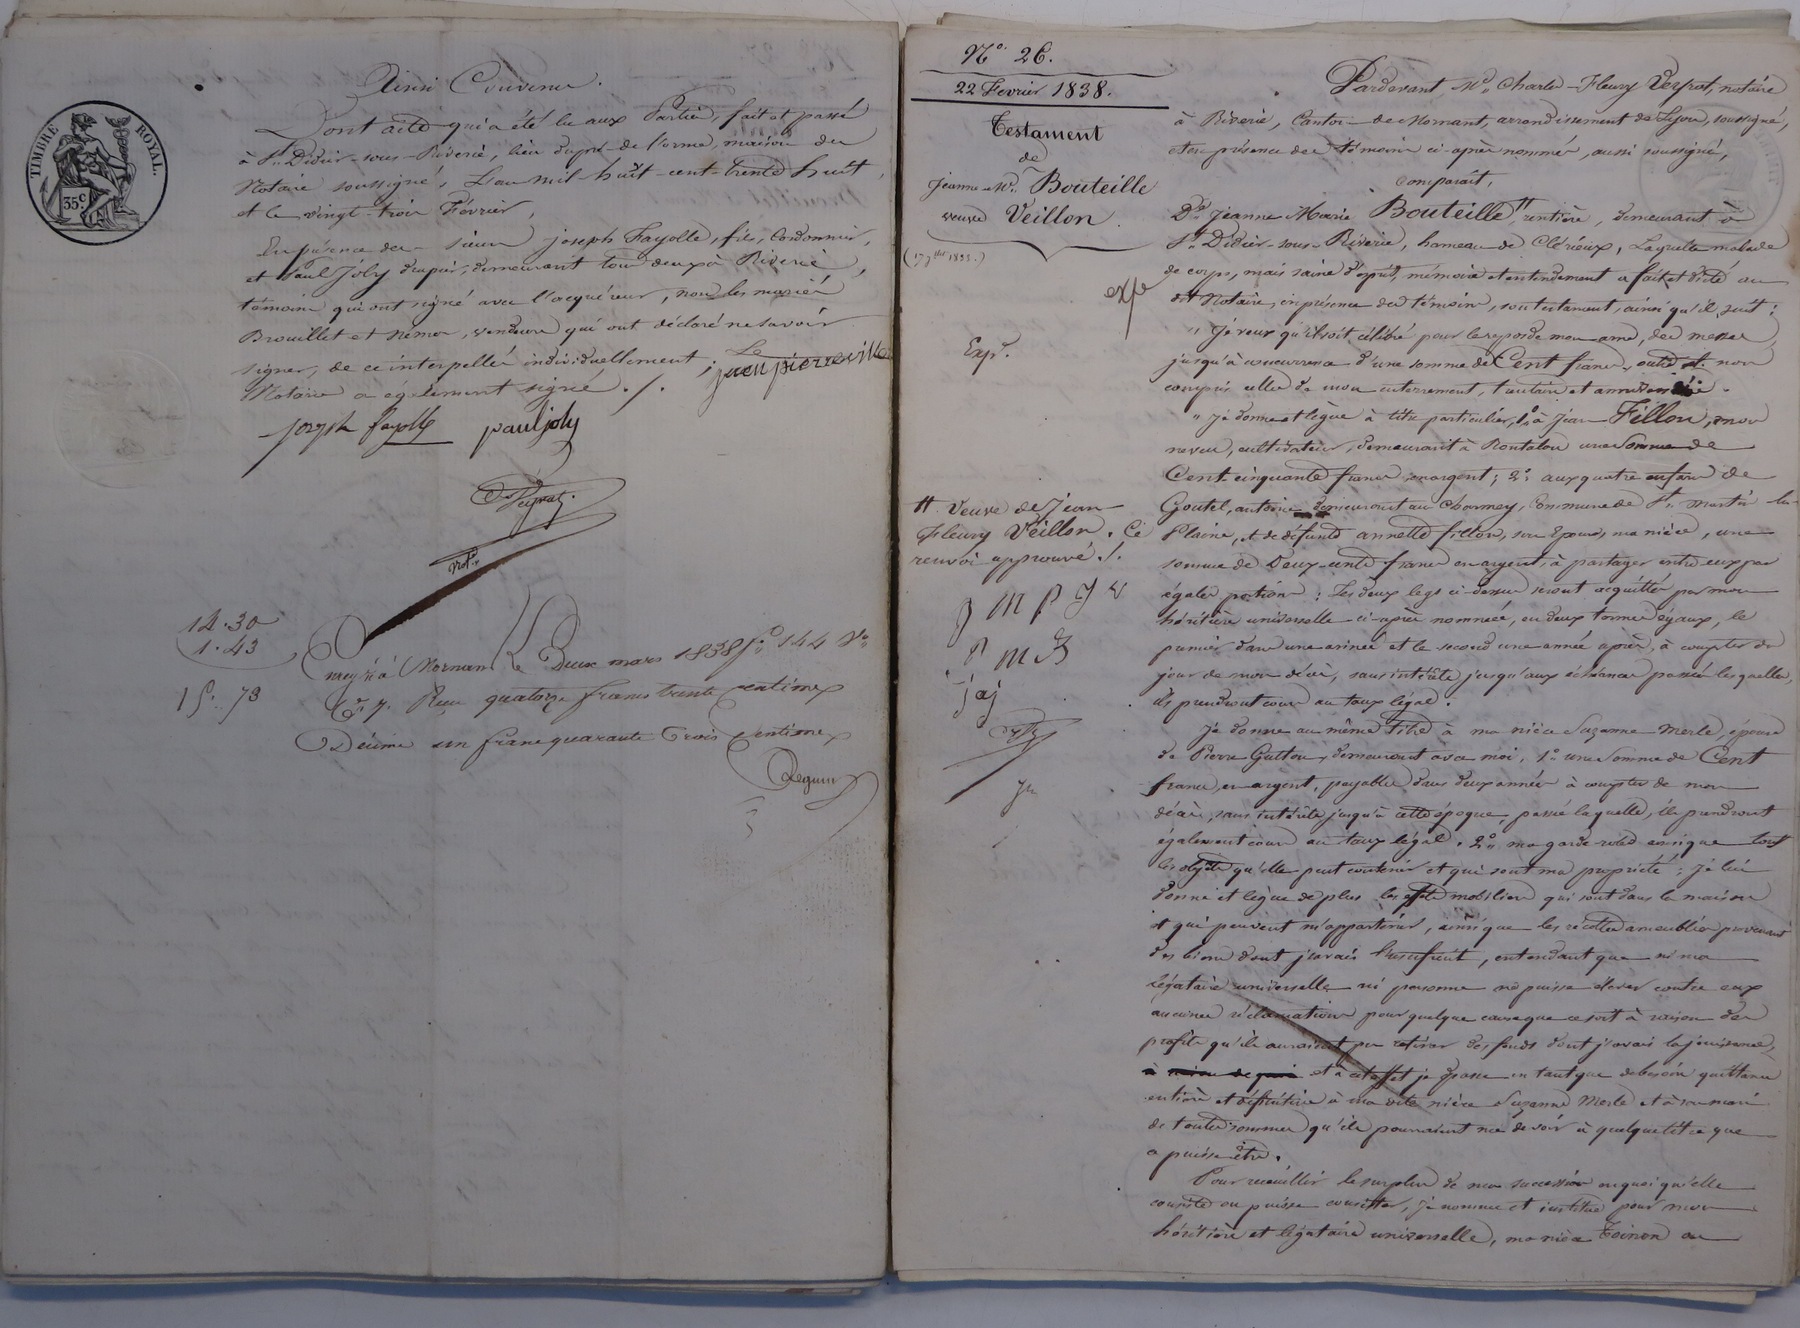 TIMBRE ROYAL.
35c.
Ainsi Convenu.
Dont acte qui a été lu aux Parties, fait et passé
à St. Didier-sous-Riverie, lieu de l'orme, maison du
Notaire soussigné, L'an mil-huit-cent-trente huit,
et le vingt-trois Février,
En présence des sieurs joseph Fayolle, fils, Cordonnier,
et Paul Joly demeurant tous deux à Riverie,
témoins qui ont signé avec l'acquéreur, non les mariés
Brouillet et Némoz, vendeurs qui ont déclaré ne savoir
signer, de ce interpellés individuellement; Le
Notaire a également signé ./.
jean pierre ville
joseph fayolle pauljoly
Peyrot.
Not.
14.30
1.43
15. 73
Enregtré à Mornant le Deux mars 1838 fo. 144 Vo.
Cn 7. Reçu quatorze francs trente centimes
Décime un franc quarante Trois centimes
No. 26.
22 Fevrier 1838.
Testament
de
jeanne Me. Bouteille
veuve Veillon.
Exp.
Expe
# veuve de Jean
Fleury Veillon. Ce
renvoi approuvé ./.
J M P J V
P M B
jaj
Pardevant Me. Charles-Fleury Peyrot, notaire
à Riverie, Canton de Mornant, arrondissement de Lyon, soussigné,
et en présence des témoins ci-après nommés, aussi soussignés,
Comparaît,
De. Jeanne Marie Bouteille # rentière, demeurant à
St. Didier-sous-Riverie, hameau de Clérieux, Laquelle malade
de corps, mais saine d'esprit, mémoire et entendement a fait et dicté au
dit Notaire, en présence des témoins, son testament, ainsi qu'il suit:
" Je veux qu'il soit célébré pour le repos de mon ame, des messes
jusqu'à concurrence d'une somme de Cent francs, outre et non
compris celles de mon enterrement, trentaine et anniversaire.
" Je donne et lègue à titre particulier, 1o. à Jean Fillon, mon
neveu, cultivateur, demeurant à Rontalon une somme de
Cent cinquante francs en argent; 2o. aux quatre enfans de
Goutel, antoine demeurant au Charmey, Commune de St. Martin la
Plaine, et de défunte annette fillon, son Epouse, ma nièce, une
somme de Deux-cents francs en argent, à partager entre eux par
égales portions: Les deux legs ci-dessus seront acquittés par mon
héritière universelle ci-après nommée, en deux termes égaux, le
premier dans une année et le second une année après, à compter du
jour de mon décès, sans intérêts jusqu'aux échéances passées lesquelles,
ils prendront cours au taux légal.
Je donne au même titre à ma nièce Suzanne Merle, épouse
de Pierre Gutton, demeurant avec moi, 1o une somme de Cent
francs, en argent, payables dans deux années à compter de mon
décès, sans intérêts jusqu'à cette époque, passé laquelle, ils prendront
également cours au taux légal. 2o. ma garde-robe ainsi que tous
les objets qu'elle peut contenir et qui sont ma propriété; je lui
donne et lègue de plus les effets mobiliers qui sont dans la maison
et qui peuvent m'appartenir, ainsi que les récoltes ameublies provenant
des biens dont j'avais l'usufruit, entendant que ni ma
légataire universelle ni personne ne puisse élever contre eux
aucunes réclamations pour quelque cause que ce soit à raison des
profits qu'ils auraient pu retirer des fonds dont j'avais la jouissance,
et à cet effet je passe en tant que de besoin quittance
entière et définitive à ma dite nièce Suzanne Merle et à son mari
de toutes sommes qu'ils pourraient me devoir à quelque titre que
ce puisse être.
Pour recueillir le surplus de ma succession en quoi qu'elle
consiste ou puisse consister, je nomme et institue pour mon
héritière et légataire universelle, ma nièce Toinon ou